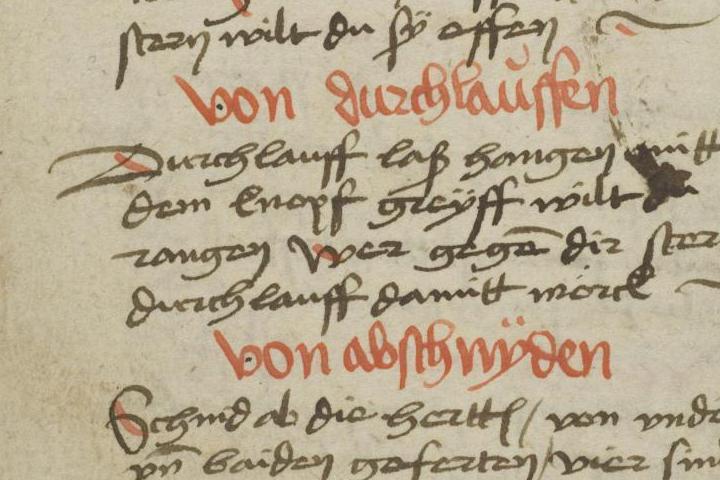 stern wilt du sÿ effen
von durchlauffen
Durchlauff laß hangen mitt
dem knopf greÿff wilt du
rangen Wer gegē dir ster
durchlauff damitt mörck
von abschnÿden
Schnid ab die hertt / von vndr
vn̄ baiden geferten / vier sin